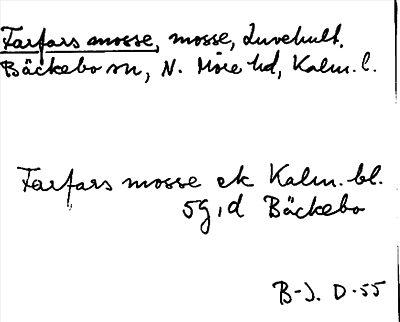 Farfars mosse, mosse, Duvehult.
Bäckebo sn, N. Möre hd, Kalm. l.
Farfars mosse ek Kalm. bl.
5g, d Bäckebo
B-J. D-55